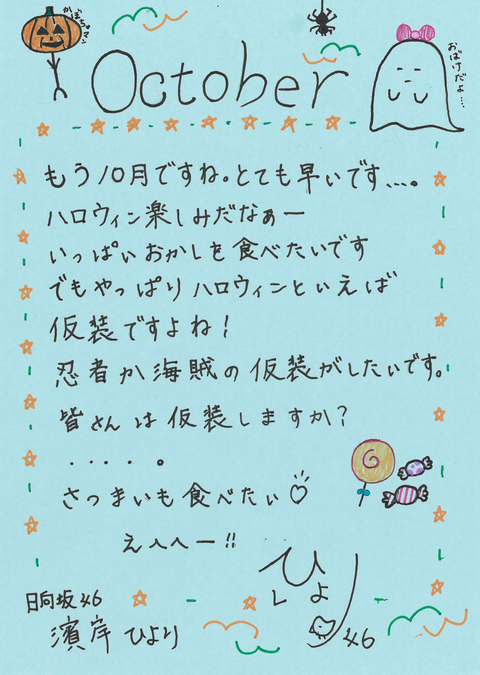 かぼちゃマン
October
おばけだよ...
もう10月ですね。とても早いです....。
ハロウィン楽しみだなぁー
いっぱいおかしを食べたいです
でもやっぱりハロウィンといえば
仮装ですよね!
忍者か海賊の仮装がしたいです。
皆さんは仮装しますか?
.....。
さつまいも食べたい♡
えへへー!!
ひより
46
日向坂46
濱岸ひより